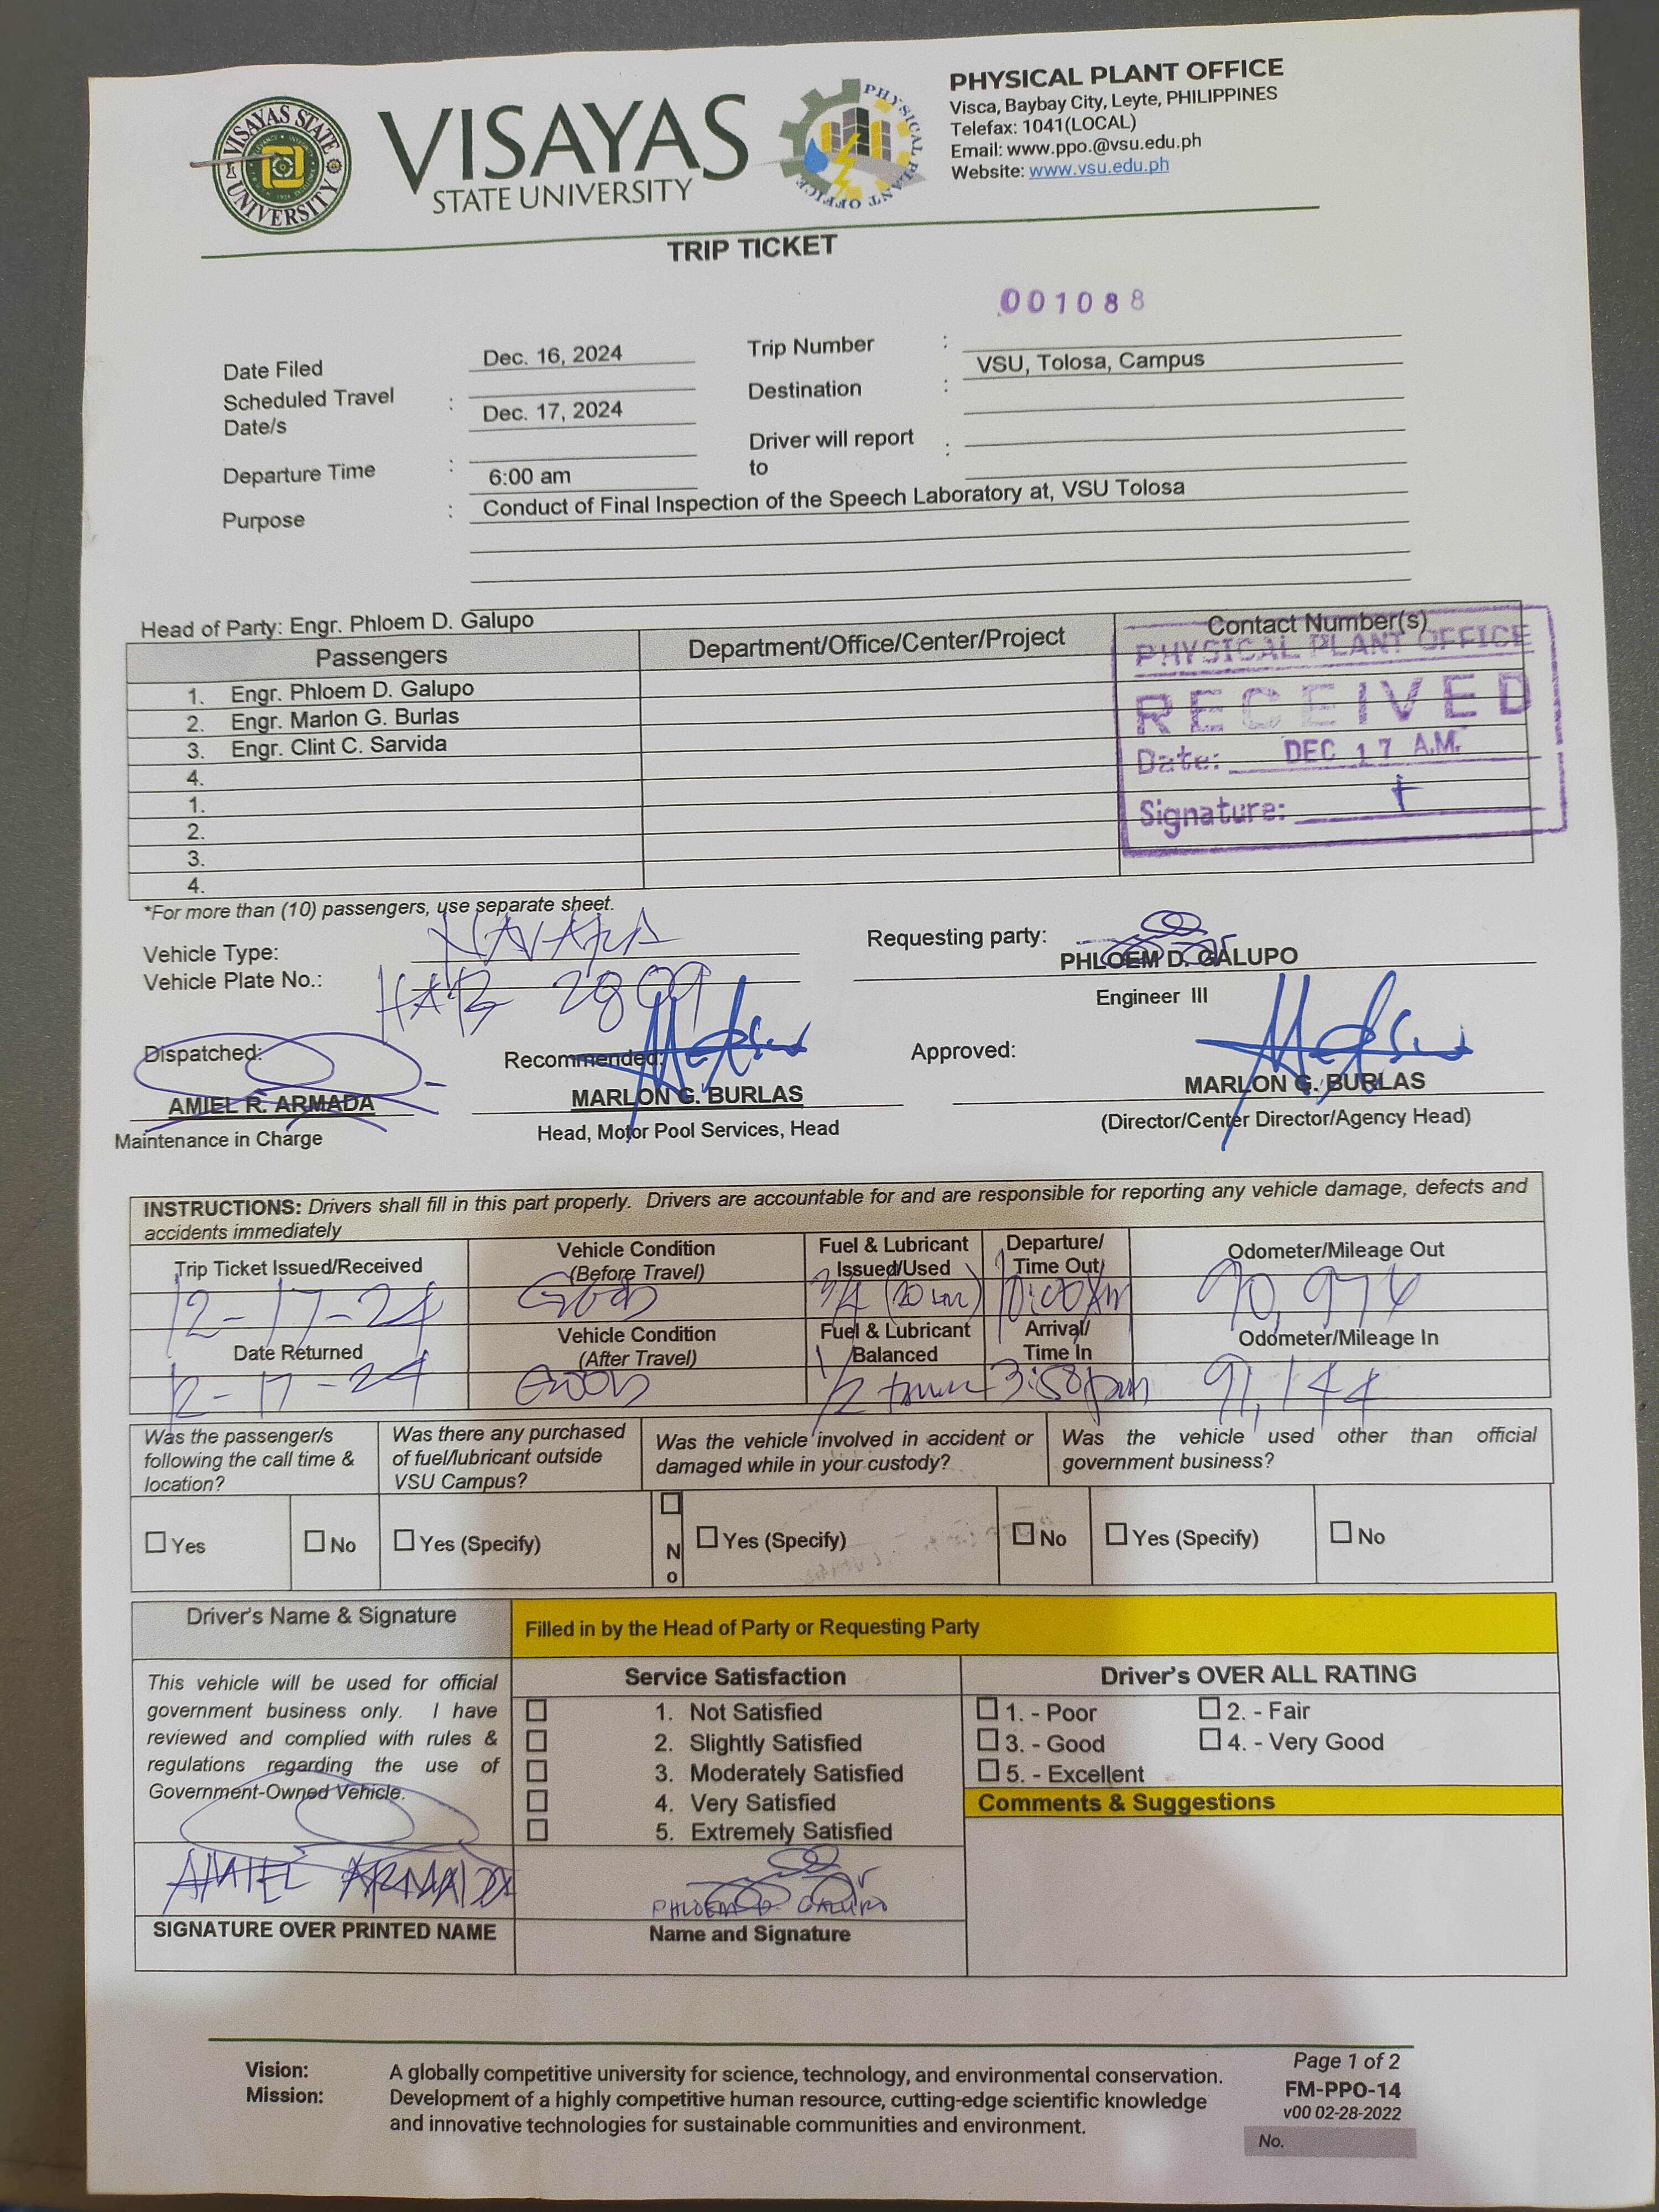 VISAYAS STATE UNIVERSITY
VISAYAS
STATE UNIVERSITY
PHYSICAL PLANT OFFICE
PHYSICAL PLANT OFFICE
Visca, Baybay City, Leyte, PHILIPPINES
Telefax: 1041(LOCAL)
Email: www.ppo.@vsu.edu.ph
Website: www.vsu.edu.ph
TRIP TICKET
001088
Date Filed Dec. 16, 2024 Trip Number :
Scheduled Travel Date/s : Dec. 17, 2024 Destination : VSU, Tolosa, Campus
Departure Time : 6:00 am Driver will report to :
Purpose : Conduct of Final Inspection of the Speech Laboratory at, VSU Tolosa
Head of Party: Engr. Phloem D. Galupo
Passengers Department/Office/Center/Project Contact Number(s)
1. Engr. Phloem D. Galupo
2. Engr. Marlon G. Burlas
3. Engr. Clint C. Sarvida
4.
1.
2.
3.
4.
PHYSICAL PLANT OFFICE
RECEIVED
Date: DEC 17 A.M.
Signature:
*For more than (10) passengers, use separate sheet.
Vehicle Type: NAVARA
Vehicle Plate No.: HAB 2809
Requesting party:
PHLOEM D. GALUPO
Engineer III
Dispatched: Recommended: Approved:
AMIEL R. ARMADA MARLON G. BURLAS MARLON G. BURLAS
Maintenance in Charge Head, Motor Pool Services, Head (Director/Center Director/Agency Head)
INSTRUCTIONS: Drivers shall fill in this part properly. Drivers are accountable for and are responsible for reporting any vehicle damage, defects and
accidents immediately
Trip Ticket Issued/Received Vehicle Condition (Before Travel) Fuel & Lubricant Issued/Used Departure/ Time Out Odometer/Mileage Out
12-17-24 Good 3/4 10:00 AM 90,976
Date Returned Vehicle Condition (After Travel) Fuel & Lubricant Balanced Arrival/ Time In Odometer/Mileage In
12-17-24 Good 1/2 3:58pm 91,144
Was the passenger/s following the call time & location? Was there any purchased of fuel/lubricant outside VSU Campus? Was the vehicle involved in accident or damaged while in your custody? Was the vehicle used other than official government business?
Yes No Yes (Specify) No Yes (Specify) No Yes (Specify) No
Driver's Name & Signature Filled in by the Head of Party or Requesting Party
This vehicle will be used for official
government business only. I have
reviewed and complied with rules &
regulations regarding the use of
Government-Owned Vehicle.
Service Satisfaction
1. Not Satisfied
2. Slightly Satisfied
3. Moderately Satisfied
4. Very Satisfied
5. Extremely Satisfied
Driver's OVER ALL RATING
1. - Poor 2. - Fair
3. - Good 4. - Very Good
5. - Excellent
Comments & Suggestions
AMIEL ARMADA PHLOEM D. GALUPO
SIGNATURE OVER PRINTED NAME Name and Signature
Vision: A globally competitive university for science, technology, and environmental conservation.
Mission: Development of a highly competitive human resource, cutting-edge scientific knowledge
and innovative technologies for sustainable communities and environment.
Page 1 of 2
FM-PPO-14
v00 02-28-2022
No.